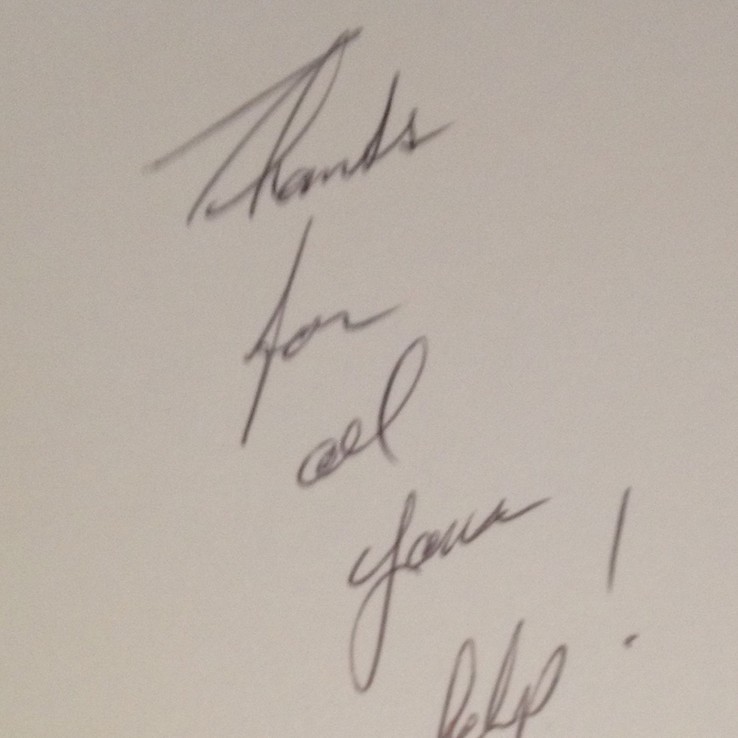 Thanks
for
all
your
help!